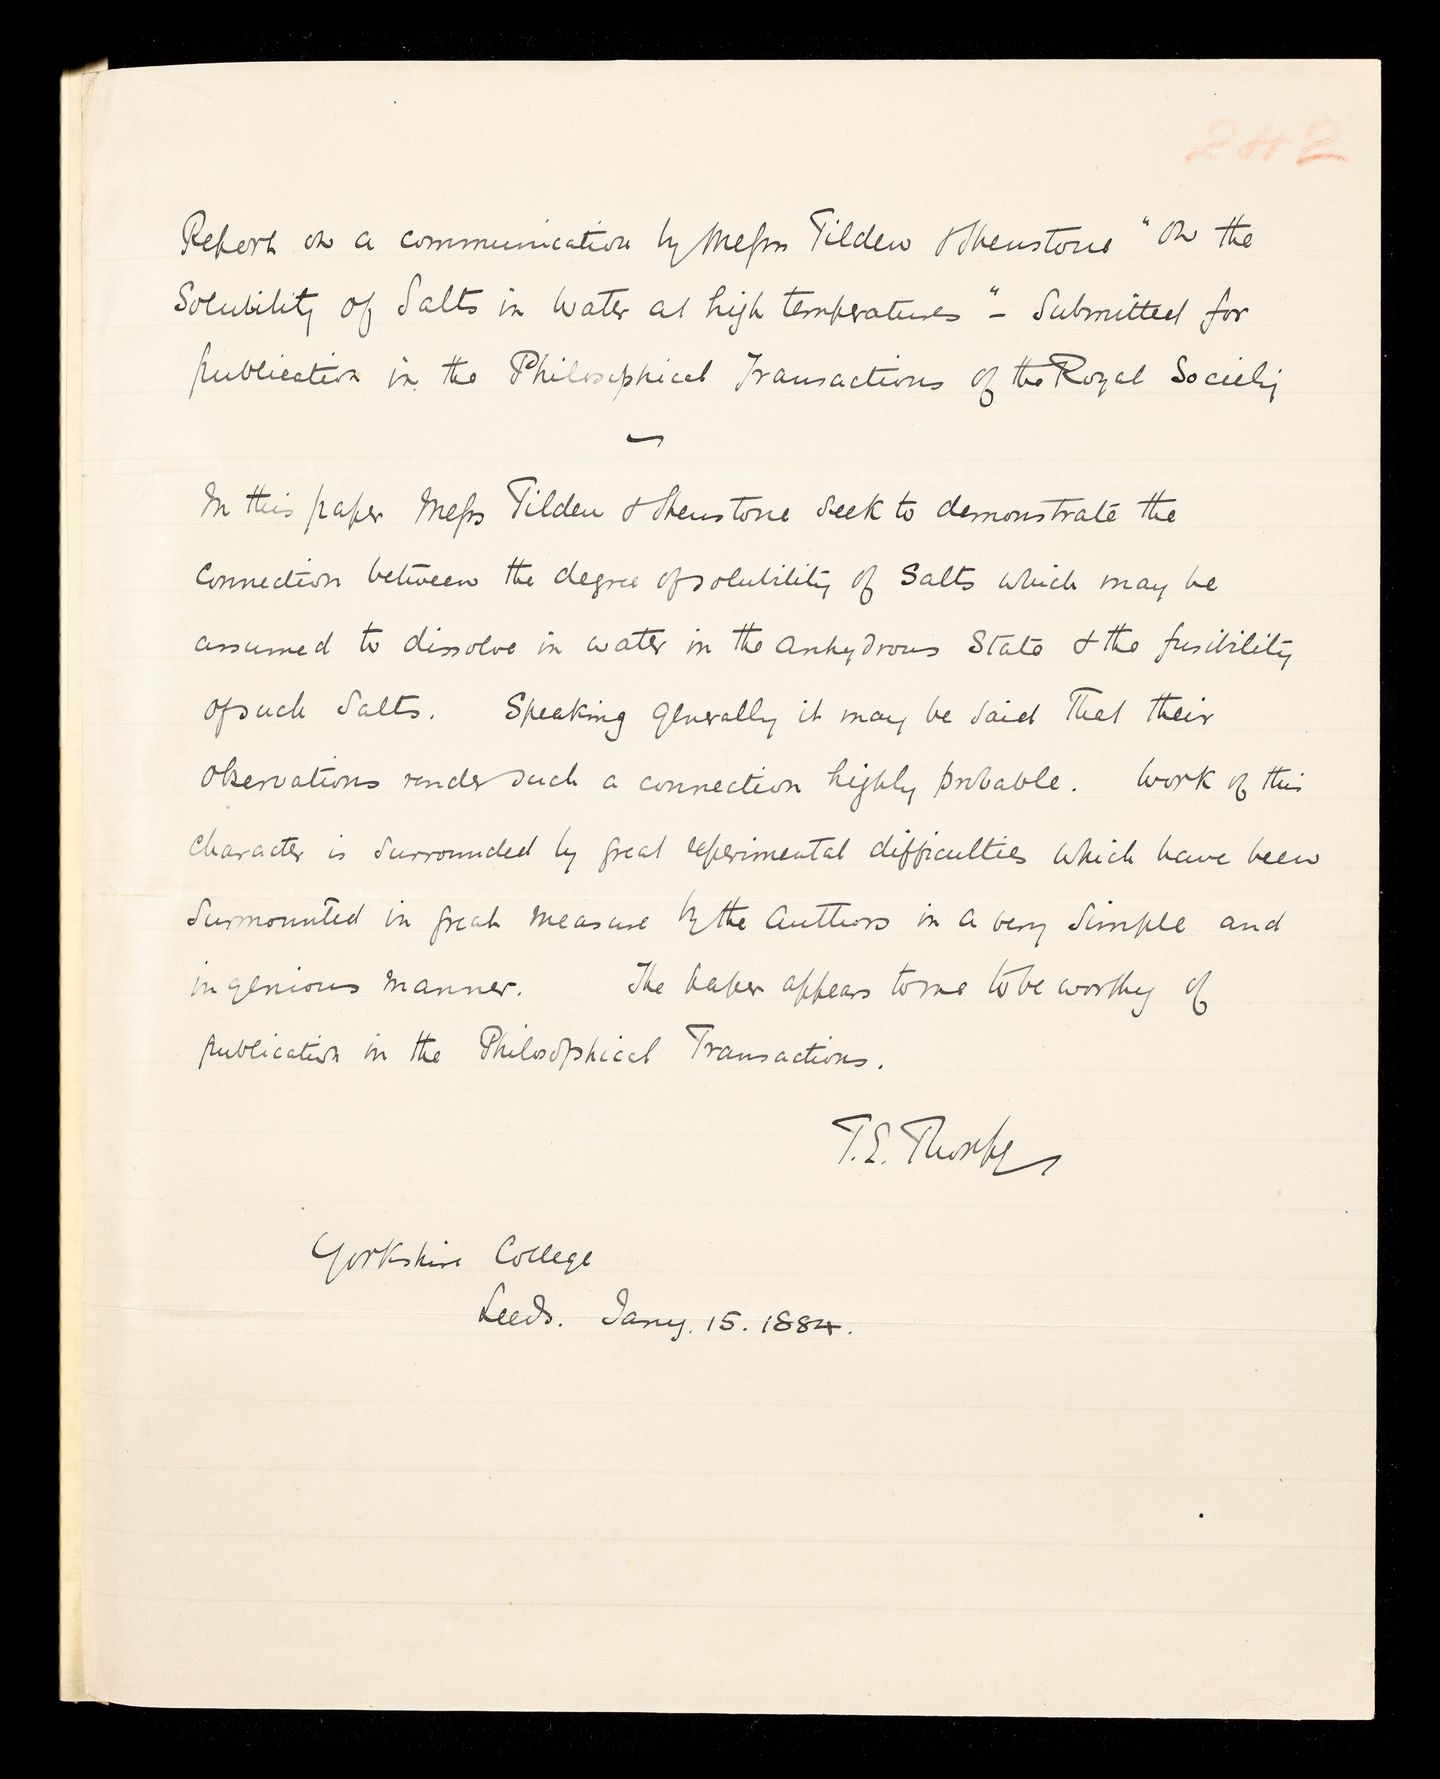 Report on a communication by Messrs Tilden & Shenstone "On the
Solubility of Salts in Water at high temperatures" - Submitted for
publication in the Philosophical Transactions of the Royal Society
In this paper Messrs Tilden & Shenstone seek to demonstrate the
connection between the degree of solubility of Salts which may be
assumed to dissolve in water in the anhydrous State & the fusibility
of such Salts. Speaking generally it may be said that their
observations render such a connection highly probable. Work of this
character is surrounded by great experimental difficulties which have been
surmounted in great measure by the authors in a very simple and
ingenious manner. The paper appears to me to be worthy of
publication in the Philosophical Transactions.
T.E. Thorpe
Yorkshire College
Leeds. Jany. 15. 1884.